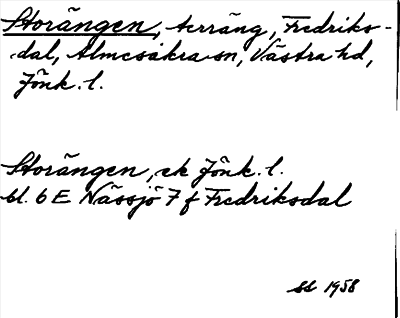 Storängen, terräng, Fredriks-
dal, Almesåkra sn, Västra hd,
Jönk. l.
Storängen, ek Jönk. l.
bl. 6 E Nässjö 7 f Fredriksdal
sd 1958